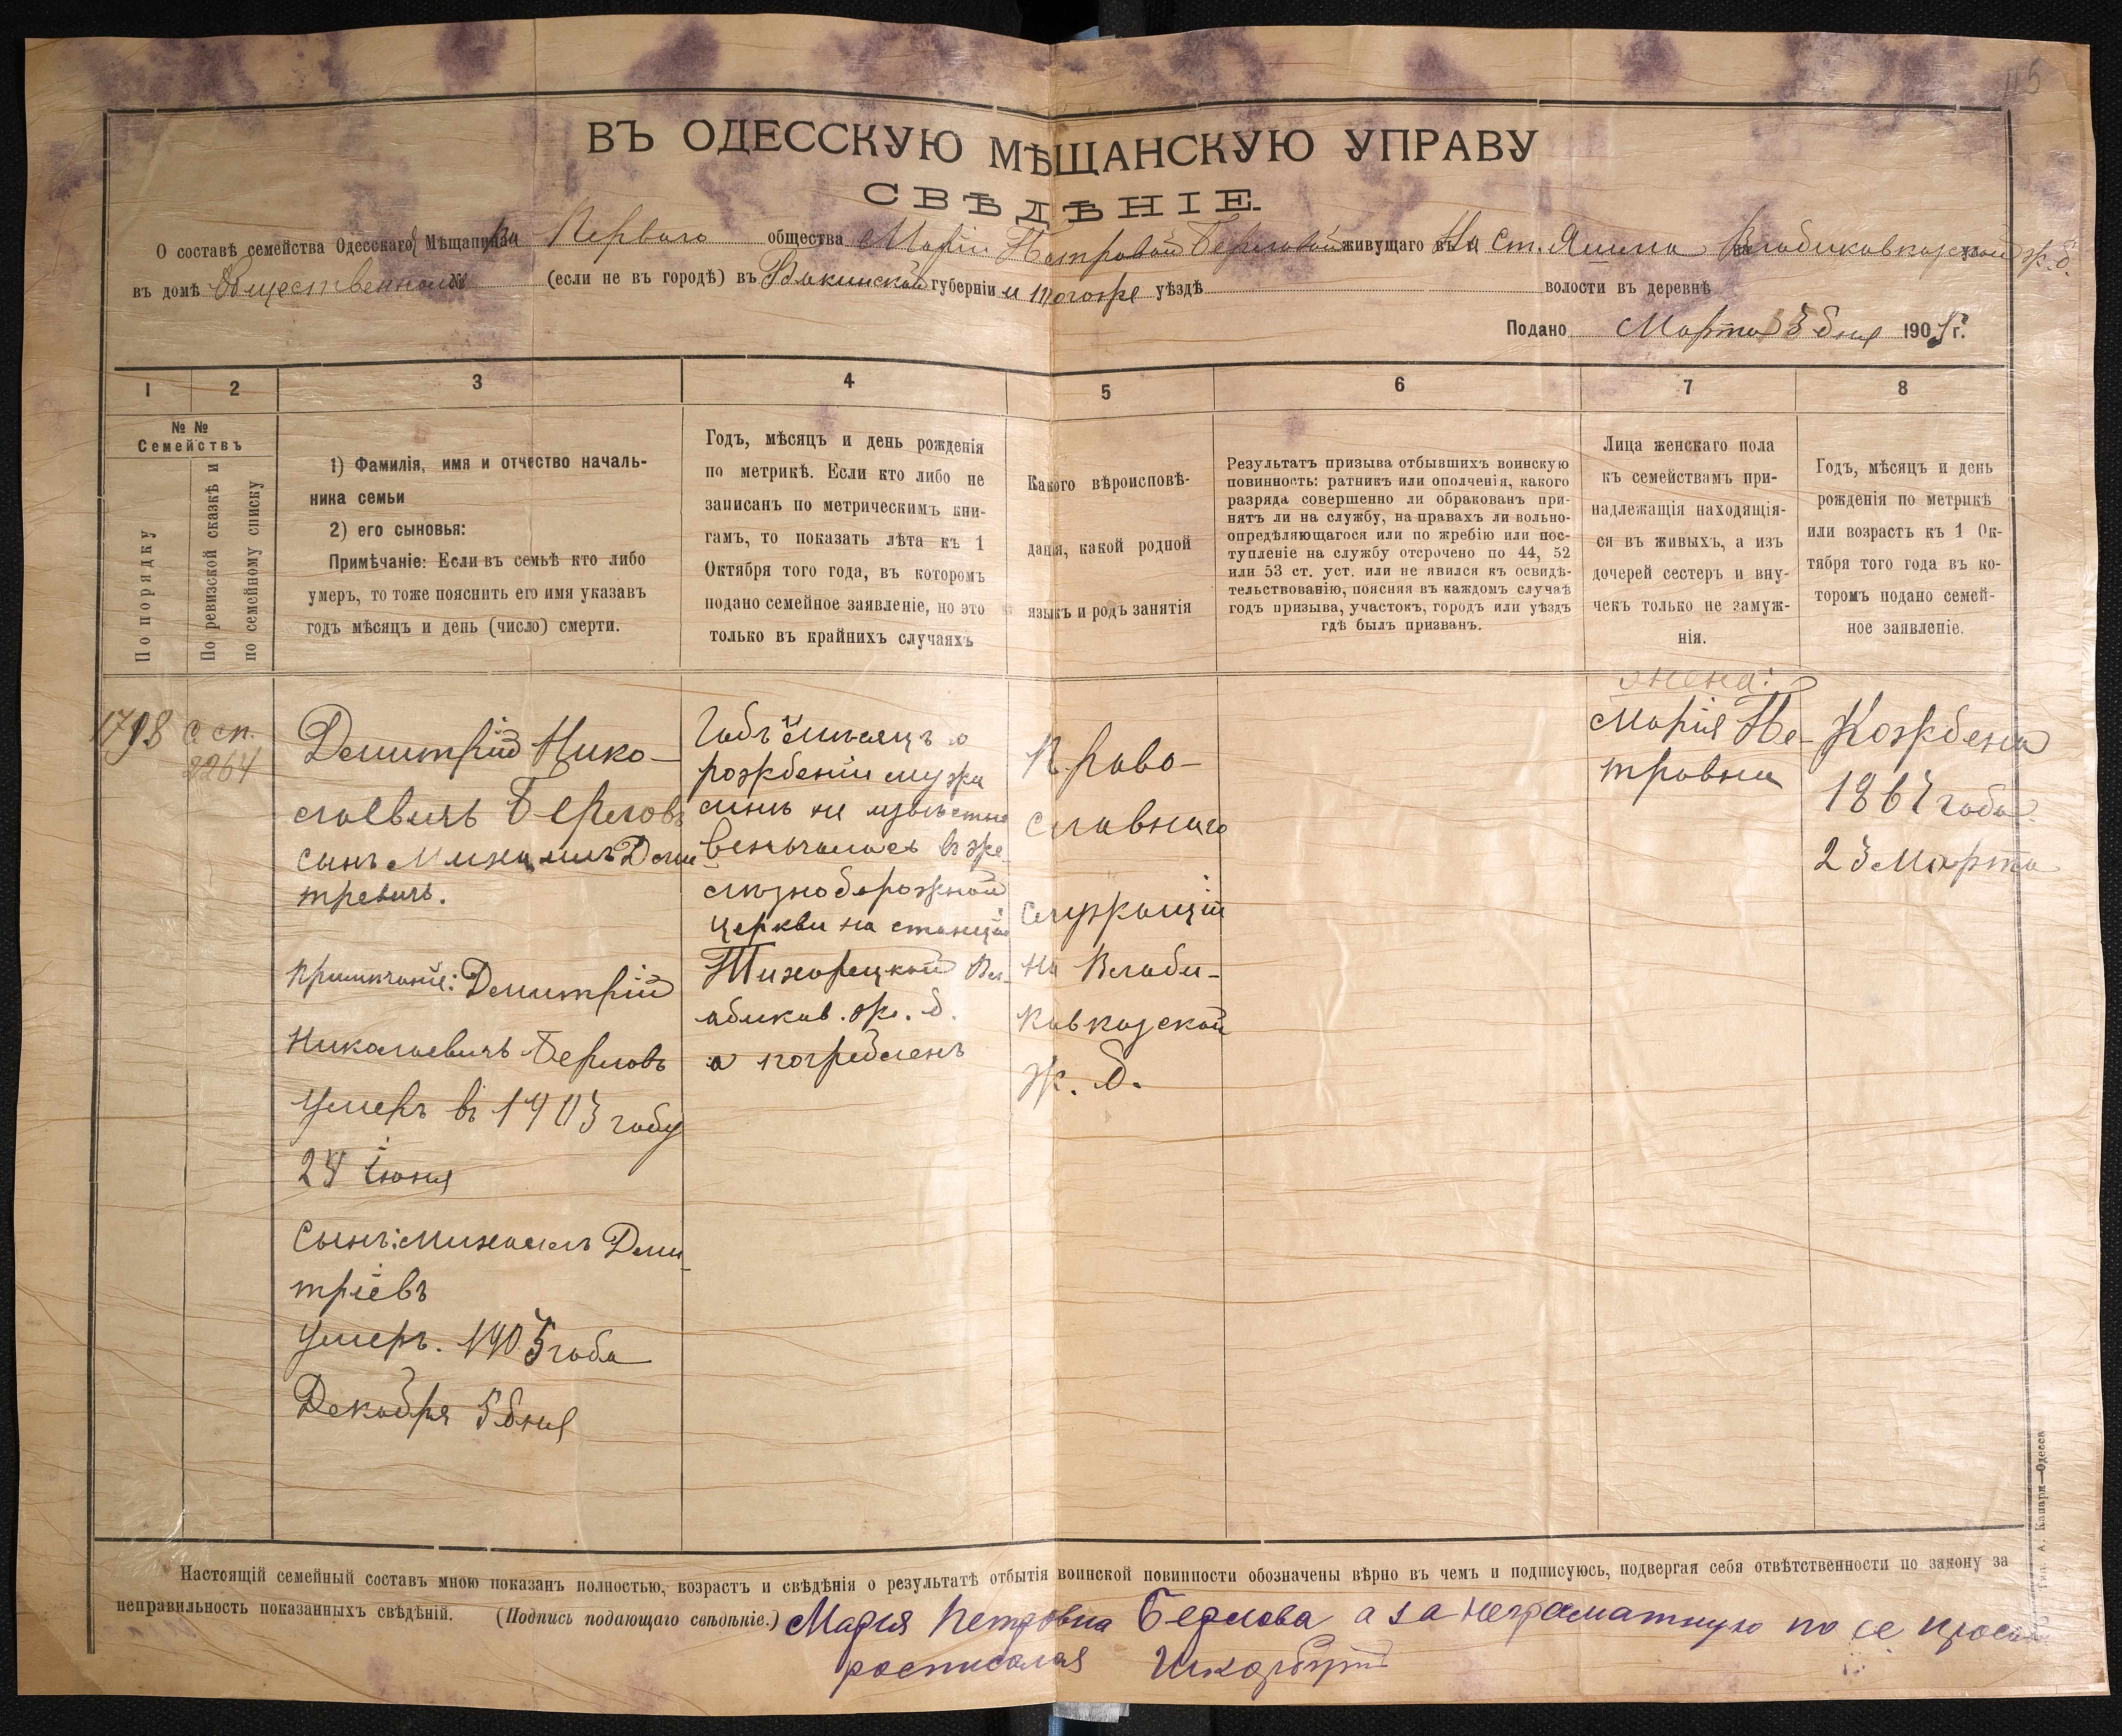 115
ВЪ ОДЕССКУЮ МѢЩАНСКУЮ УПРАВУ
СВѢДѢНІЕ.
О составѣ семейства Одесскаго Мѣщанина Перваго общества Маріи Петровой Берловой живущаго въ На ст. на Владикавказской ж. д.
въ домѣ Общественномъ № (если не въ городѣ) въ Бакинской губерніи и тогоже уѣздѣ волости въ деревнѣ
Подано Марта дня 1905 г.
1 2 3 4 5 6 7 8
№ №
Семействъ
По порядку
По ревизской сказкѣ и
по семейному списку
1) Фамилія, имя и отчество началь-
ника семьи
2) его сыновья:
Примѣчаніе: Если въ семьѣ кто либо
умеръ, то тоже пояснить его имя указавъ
годъ мѣсяцъ и день (число) смерти.
Годъ, мѣсяцъ и день рожденія
по метрикѣ. Если кто либо не
записанъ по метрическимъ кни-
гамъ, то показать лѣта къ 1
Октября того года, въ которомъ
подано семейное заявленіе, но это
только въ крайнихъ случаяхъ
Какого вѣроисповѣ-
данія, какой родной
языкъ и родъ занятія
Результатъ призыва отбывшихъ воинскую
повинность: ратникъ или ополченія, какого
разряда совершенно ли обракованъ при-
нятъ ли на службу, на правахъ ли вольно-
опредѣляющагося или по жребію или пос-
тупленіе на службу отсрочено по 44, 52
или 53 ст. уст. или не явился къ освидѣ-
тельствованію, поясняя въ каждомъ случаѣ
годъ призыва, участокъ, городъ или уѣздъ
гдѣ былъ призванъ.
Лица женскаго пола
къ семействамъ при-
надлежащія находящія-
ся въ живыхъ, а изъ
дочерей сестеръ и вну-
чекъ только не замуж-
нія.
Годъ, мѣсяцъ и день
рожденія по метрикѣ
или возрастъ къ 1 Ок-
тября того года въ ко-
торомъ подано семей-
ное заявленіе.
1798
сп.
2264
Демитрій Нико-
лаевичъ Берловъ
сынъ Михаилъ Деми
тревичъ.
Примѣчаніе: Демитрій
Николаевичъ Берловъ
Умеръ въ 1903 году
24 Іюня
Сынъ: Михаилъ Деми-
тріевъ
Умеръ. 1905 года
Декабря 5 дня
Годъ и мѣсяцъ о
рожденіи мужа
сынъ не извѣстно
венчалась въ же-
лѣзнодорожной
церкви на станціи
Тихорецкой Вл-
адикав. ж. д.
а погребленъ
Право-
славнаго
Служащій
На Влади-
кавказской
ж. д.
жена:
Марія Пе-
тровна
Рождена
1867 года
23 Марта
Настоящій семейный составъ мною показанъ полностью, возрастъ и свѣдѣнія о результатѣ отбытія воинской повинности обозначены вѣрно въ чемъ и подписуюсь, подвергая себя отвѣтственности по закону за
неправильность показанныхъ свѣдѣній. (Подпись подающаго свѣдѣніе.) Марія Петровна Берлова а за неграмотную по ее просьбѣ
росписался
Тип. А. Капари—Одесса